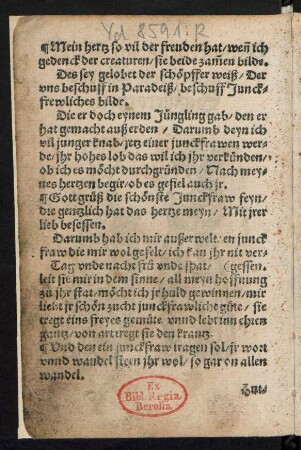 Yd 8591:R
¶Mein hertz so vil der freuden hat/weñ ich
gedenck der creaturen/sie beide zam̃en bilde.
Des sey gelobet der schöpffer weiß/Der
vns beschuff in Paradeiß/beschuff Junck-
frewliches bilde.
Die er doch eynem Jüngling gab/den er
hat gemacht auß erden/Darumb deyn ich
vil junger knab/jetz einer junckfrawen wer-
de/jhr hohes lob das wil ich jhr verkünden/
ob ich es möcht durchgründen/Nach mey-
nes hertzen begir/ob es gefiel auch jr.
¶Gott grüß die schönste Junckfraw feyn/
die gentzlich hat das hertze meyn/Mit jrer
lieb besessen.
Darumb hab ich mir außerwelt/en junck
fraw die mir wol gefelt/ich kan jhr nit ver-
Tag vnde nacht frü vnde spat/ (gessen.
leit sie mir in dem sinne/all meyn hoffnung
zu jhr stat/möcht ich jr huld gewinnen/mir
liebt jr schön zucht junckfrawliche güte/sie
tregt eins freyes gemüte vnnd lebt inn ehren
gantz/von art tregt sie den krantz.
¶Vnd den ein junckfraw tragen sol/jr wort
vnnd wandel stehn jhr wol/so gar on allen
wandel.
Zur-
Ex
Bibl. Regia
Berolin.